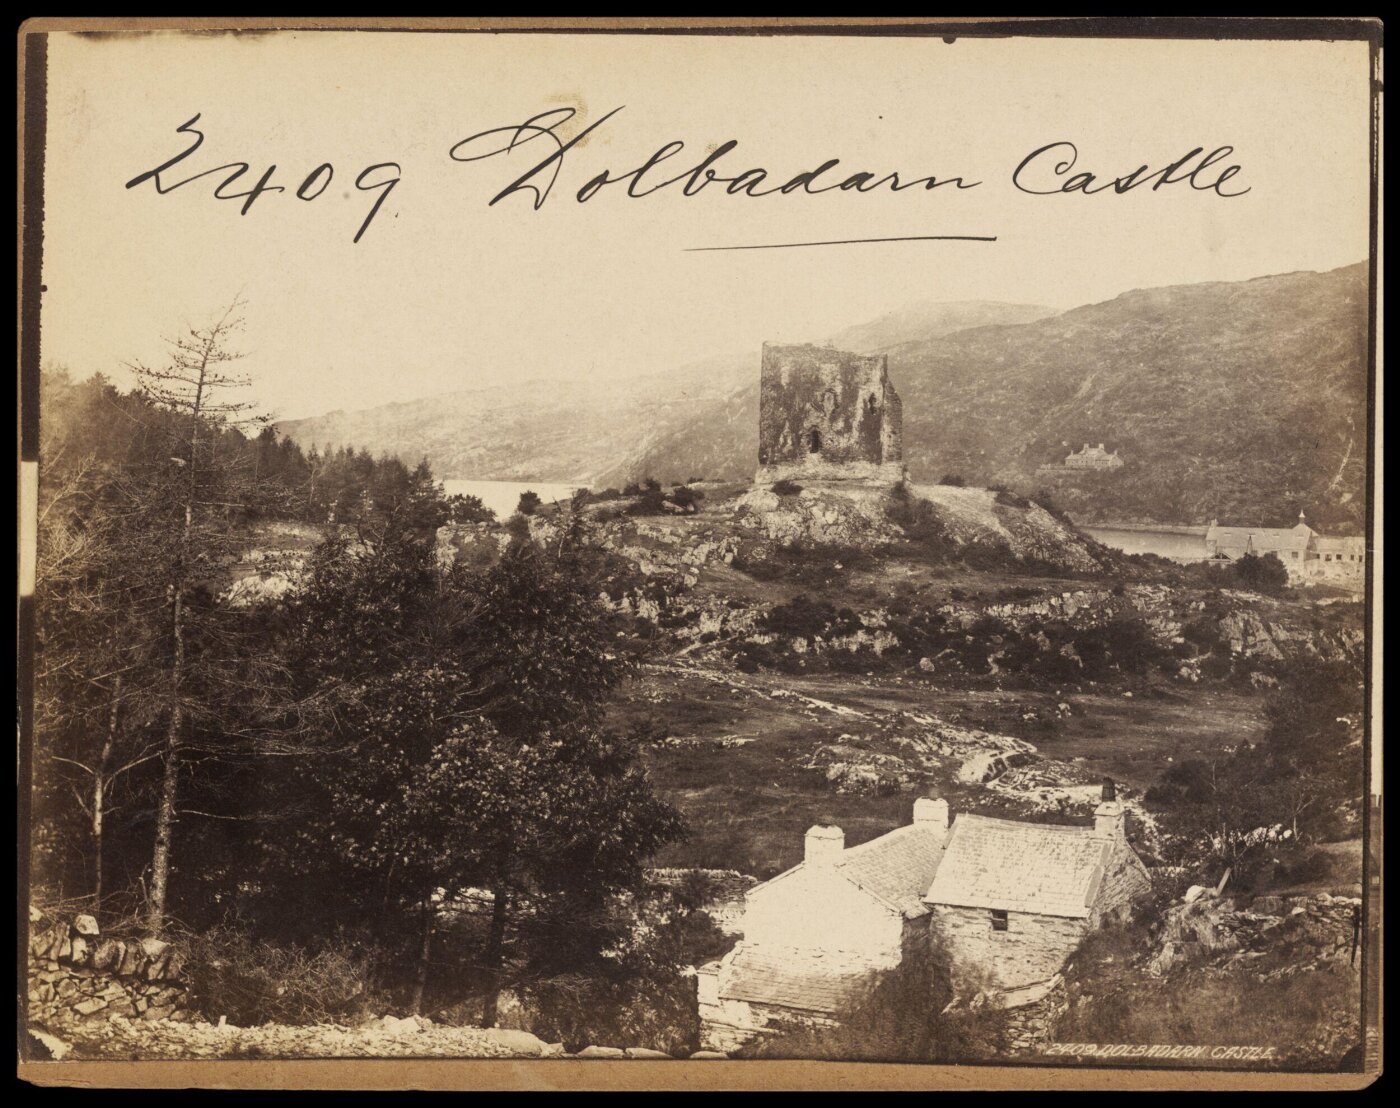 2409 Dolbadarn Castle
2409. DOLBADARN CASTLE